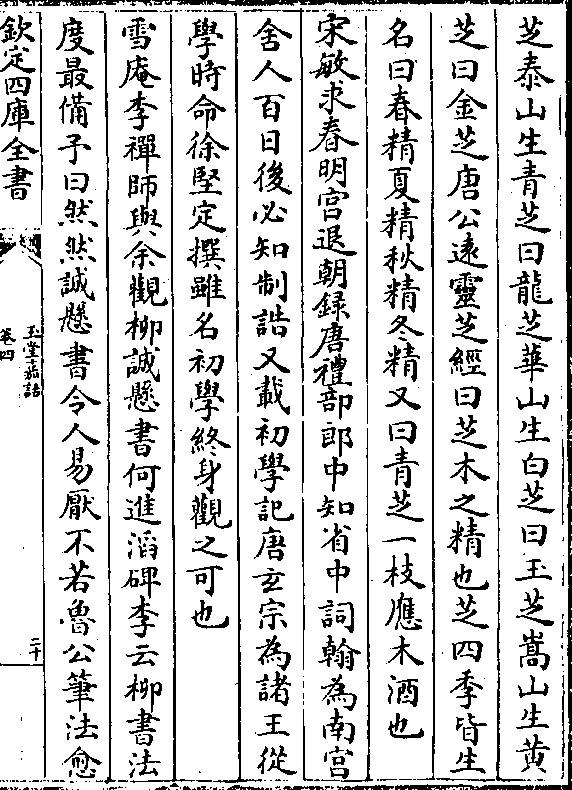 芝泰山生青芝曰龍芝華山生白芝曰玉芝嵩山生黄
芝曰金芝唐公遠靈芝經曰芝木之精也芝四季皆生
名曰春精夏精秋精冬精又曰青芝一枝應木酒也
宋敏求春明宫退朝録唐禮部郎中知省中詞翰為南宫
舍人百日後必知制誥又載初學記唐玄宗為諸王從
學時命徐堅定撰雖名初學終身觀之可也
雪庵李禪師與余觀柳誠懸書何進滔碑李云柳書法
度最備予曰然然誠懸書令人易厭不若魯公筆法愈
欽定四庫全書
玉堂嘉話
卷四
二十